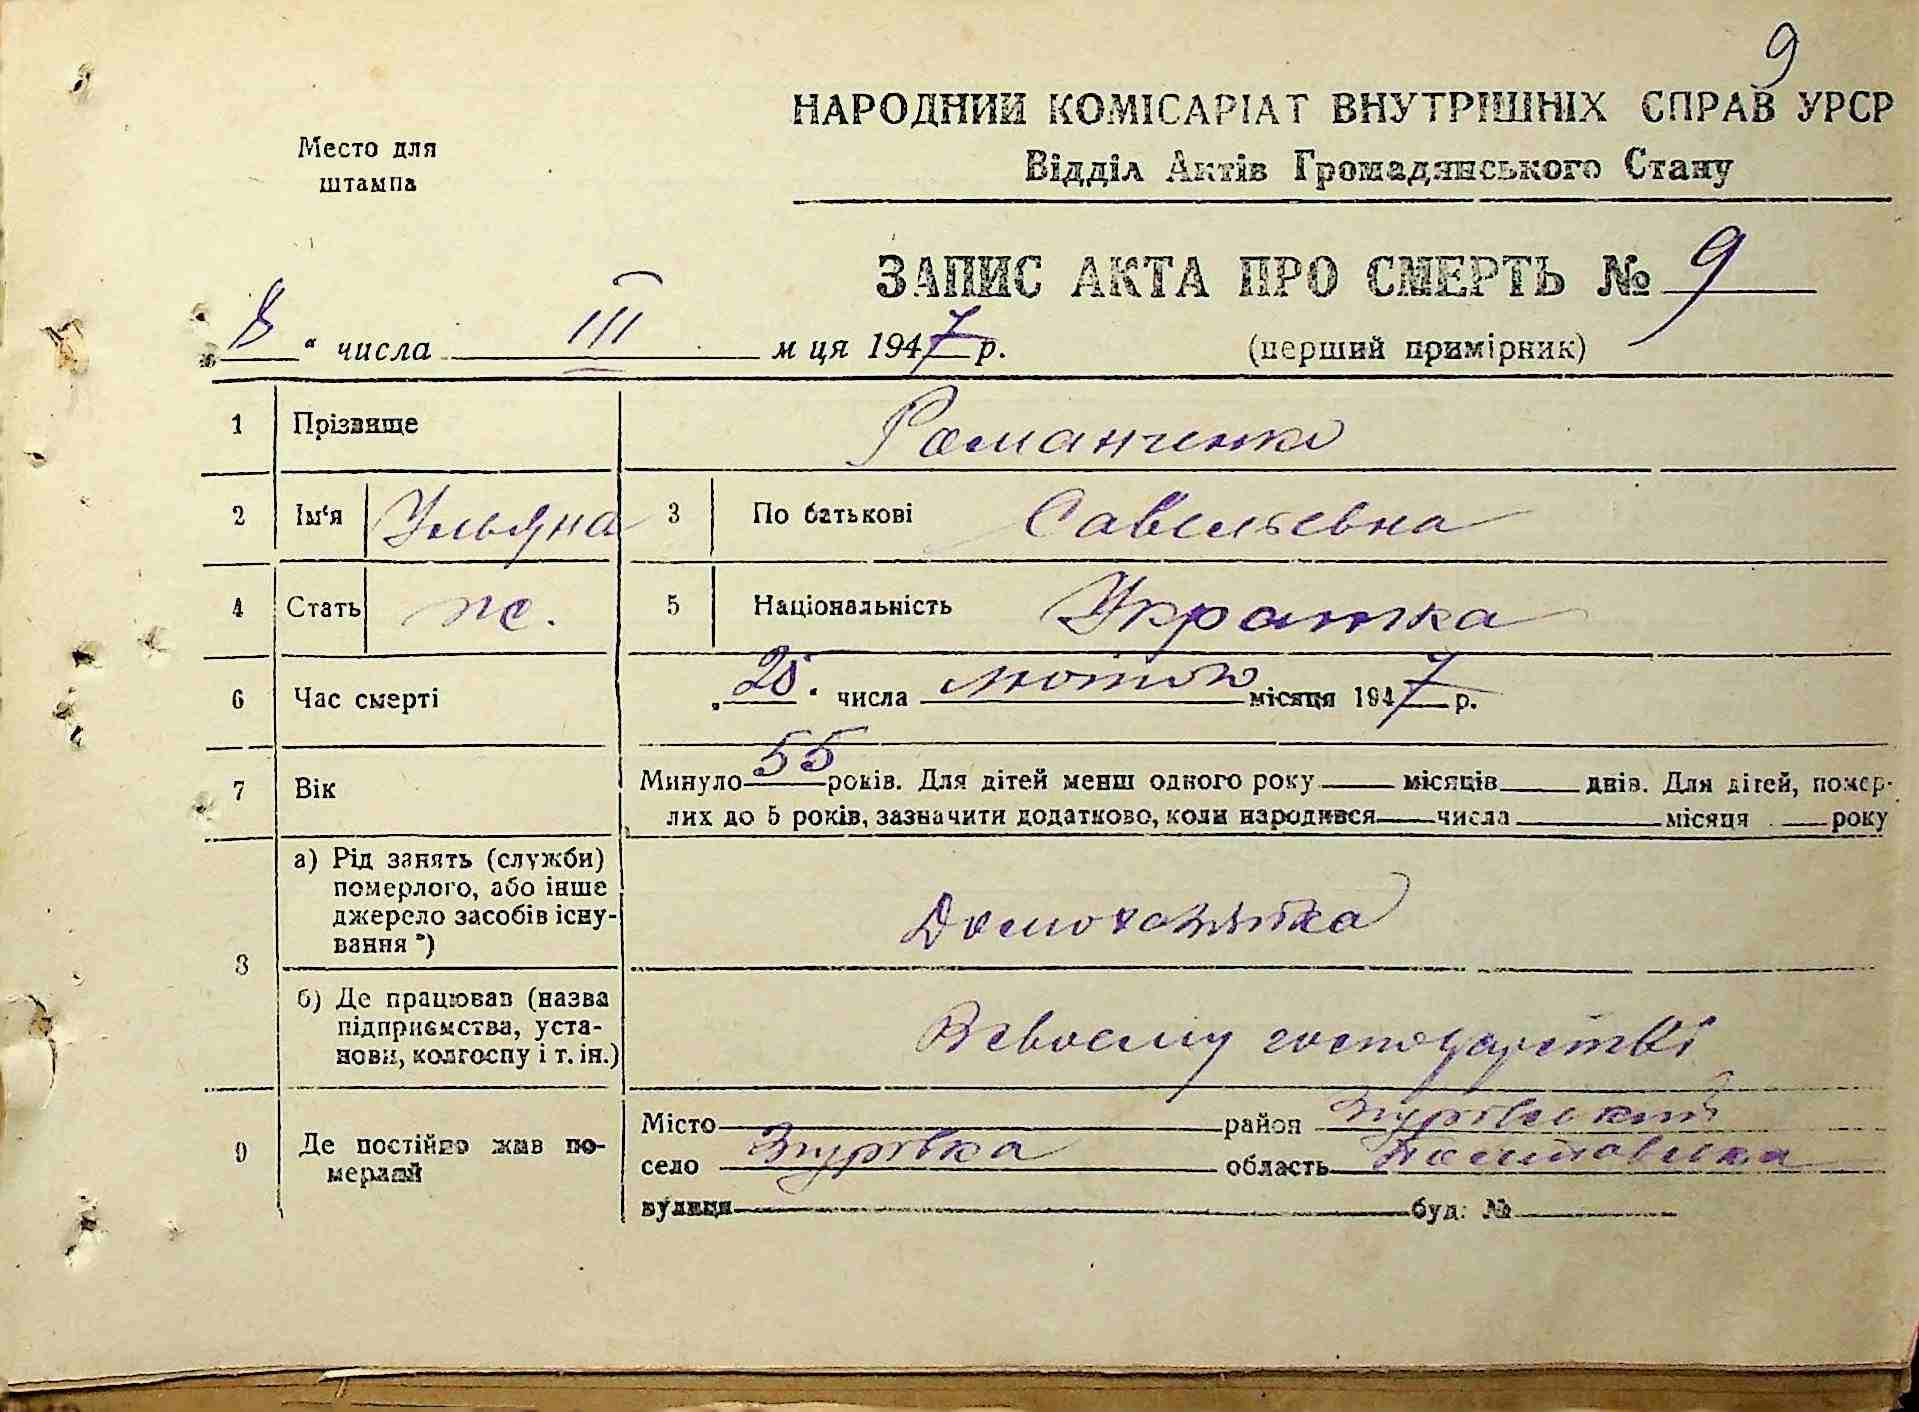 9
НАРОДНИЙ КОМІСАРІАТ ВНУТРІШНІХ СПРАВ УРСР
Відділ Актів Громадянського Стану
Место для
штампа
ЗАПИС АКТА ПРО СМЕРТЬ № 9
„ 8 “ числа III м ця 1947 р. (перший примірник)
1 Прізвище Романченко
2 Ім'я Ульяна 3 По батькові Савельевна
4 Стать ж. 5 Національність Украинка
6 Час смерті „ числа лютого місяця 1947 р.
7 Вік Минуло 55 років. Для дітей менш одного року місяців днів. Для дітей, помер-
лих до 5 років, зазначити додатково, коли народився числа місяця року
8 а) Рід занять (служби)
померлого, або інше
джерело засобів існу-
вання *)
Домохазяйка
б) Де працював (назва
підприємства, уста-
нови, колгоспу і т. ін.)
В своєму господарстві
9 Де постійно жив по-
мерлий
Місто район Згурівський
село Згурівка область Полтавська
вулиця буд. №